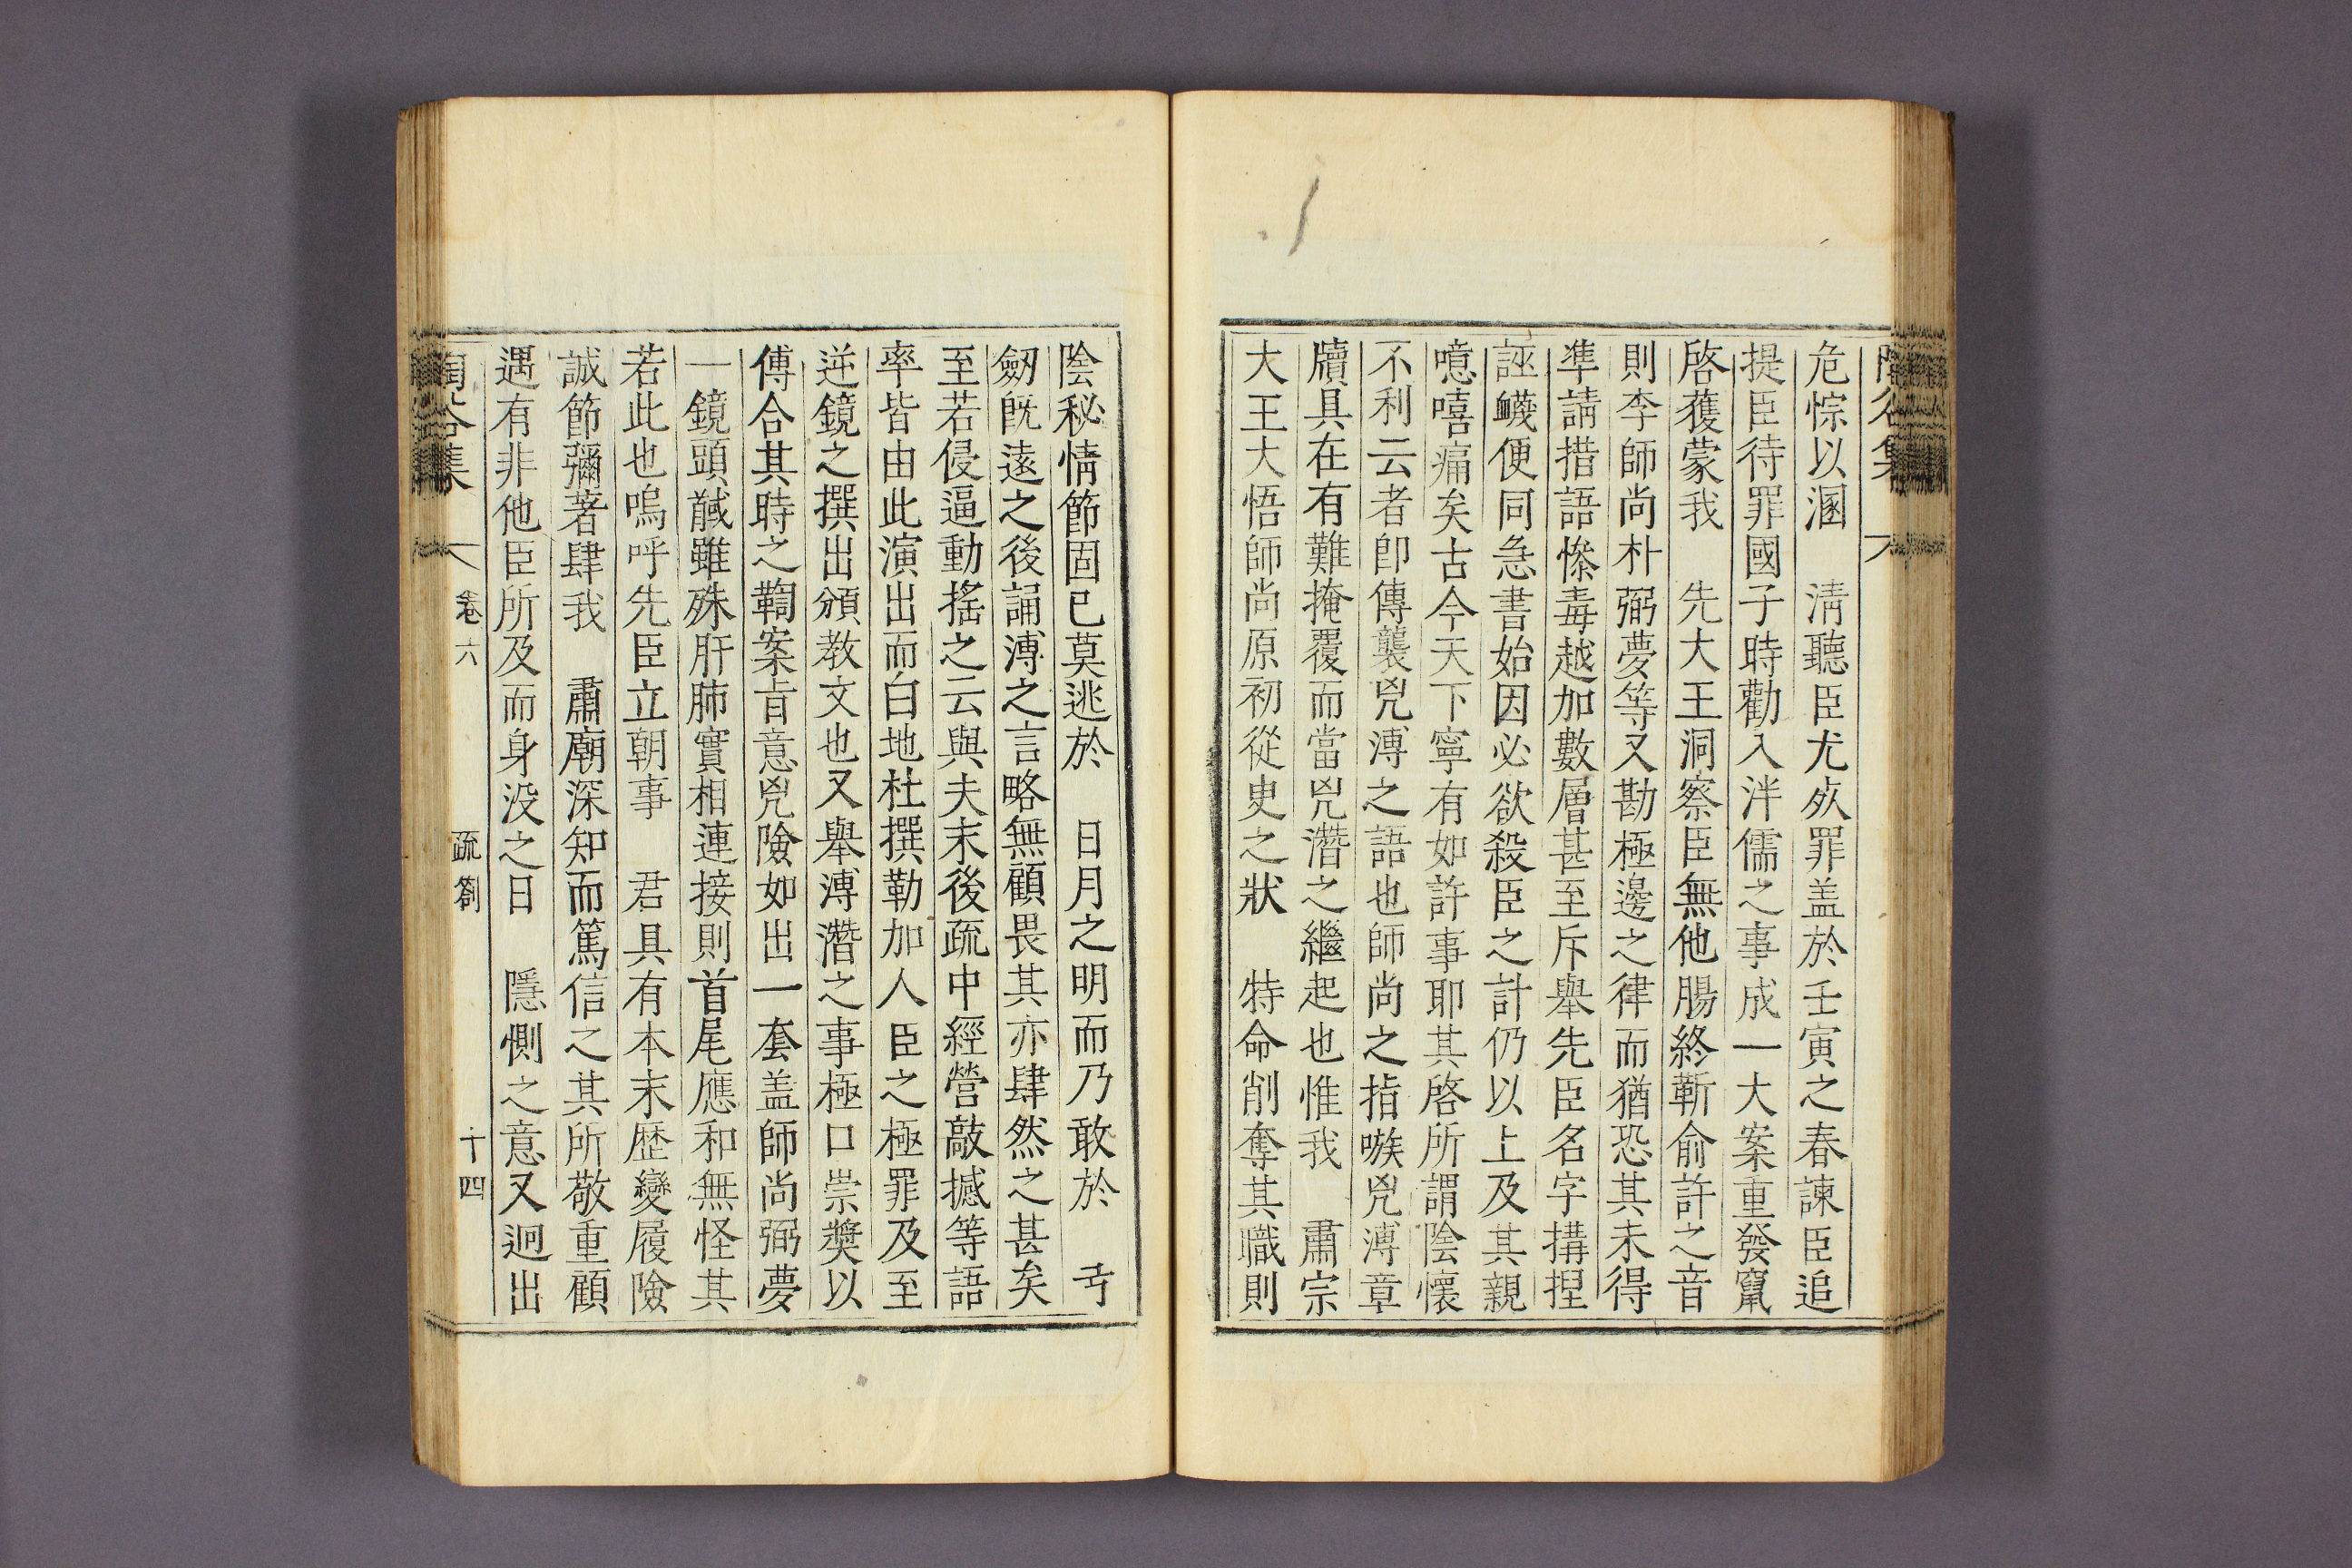 危悰以溷　淸聽臣尤死罪盖於壬寅之春諫臣追
提臣待罪國子時勸入泮儒之事成一大案重發竄
啓獲蒙我　先大王洞察臣無他腸終靳俞許之音
則李師尚朴弼夢等又勘極邊之律而猶恐其未得
準請措語慘毒越加數層甚至斥舉先臣名字搆捏
誣衊便同急書始因必欲殺臣之計仍以上及其親
噫嘻痛矣古今天下寧有如許事耶其啓所謂陰懷
不利云者卽傳襲兇溥之語也師尚之指嗾兇溥章
牘具在有難掩覆而當兇濳之繼起也惟我　肅宗
大王大悟師尚原初從史之狀　特命削奪其職則
陰秘情節固已莫逃於　日月之明而乃敢於　弓
劒旣遠之後誦溥之言略無顧畏其亦肆然之甚矣
至若侵逼動搖之云與夫末後疏中經營敲撼等語
率皆由此演出而白地杜撰勒加人臣之極罪及至
逆鏡之撰出頒教文也又舉溥濳之事極口崇奬以
傅合其時之鞫案旨意兇險如出一套盖師尚弼夢
一鏡頭馘雖殊肝肺實相連接則首尾應和無怪其
若此也嗚呼先臣立朝事　君具有本末歷變履險
誠節彌著肆我　肅廟深知而篤信之其所敬重顧
遇有非他臣所及而身没之日　隱惻之意又迥出
陶谷集　卷六　疏劄　十四